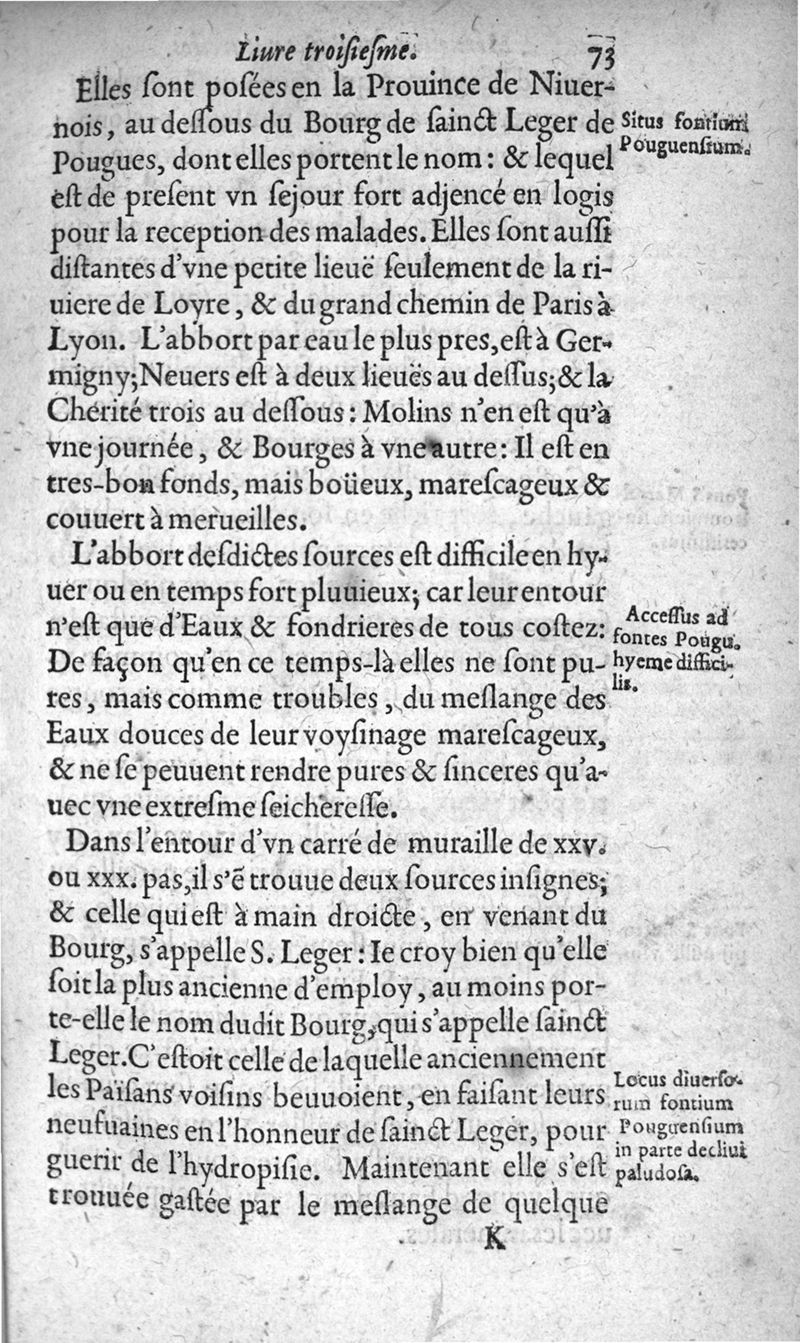 Liure troisiesme. 73
Elles ſont poſées en la Prouince de Niuer-
nois, au deſſous du Bourg de ſainct Leger de
Pougues, dont elles portent le nom: & lequel
eſt de preſent vn ſejour fort adjencé en logis
pour la reception des malades. Elles ſont auſſi
diſtantes d'vne petite lieuë ſeulement de la ri-
uiere de Loyre, & du grand chemin de Paris à
Lyon. L'abbort par eau le plus pres, eſt à Ger-
migny; Neuers eſt à deux lieuës au deſſus; & la
Cherité trois au deſſous: Molins n'en eſt qu'à
vne journée, & Bourges à vne autre: Il eſt en
tres-bon fonds, mais boüeux, mareſcageux &
couuert à merueilles.
L'abbort deſdictes ſources eſt difficile en hy-
uer ou en temps fort pluuieux; car leur entour
n'eſt que d'Eaux & fondrieres de tous coſtez:
De façon qu'en ce temps-là elles ne ſont pu-
res, mais comme troubles, du meſlange des
Eaux douces de leur voyſinage mareſcageux,
& ne ſe peuuent rendre pures & ſinceres qu'a-
uec vne extreſme ſeichereſſe.
Dans l'entour d'vn carré de muraille de xxv.
ou xxx. pas, il s'ẽ trouue deux ſources inſignes;
& celle qui eſt à main droicte, en venant du
Bourg, s'appelle S. Leger: Ie croy bien qu'elle
ſoit la plus ancienne d'employ, au moins por-
te-elle le nom dudit Bourg, qui s'appelle ſainct
Leger. C'eſtoit celle de laquelle anciennement
les Païſans voiſins beuuoient, en faiſant leurs
neufuaines en l'honneur de ſainct Leger, pour
guerir de l'hydropiſie. Maintenant elle s'eſt
trouuée gaſtée par le meſlange de quelque
K
Situs fontium
Pouguenſium.
Acceſſus ad
fontes Pougu.
hyeme diffici-
lis.
Locus diuerſo-
rum fontium
Pouguenſium
in parte decliui
paludoſa.